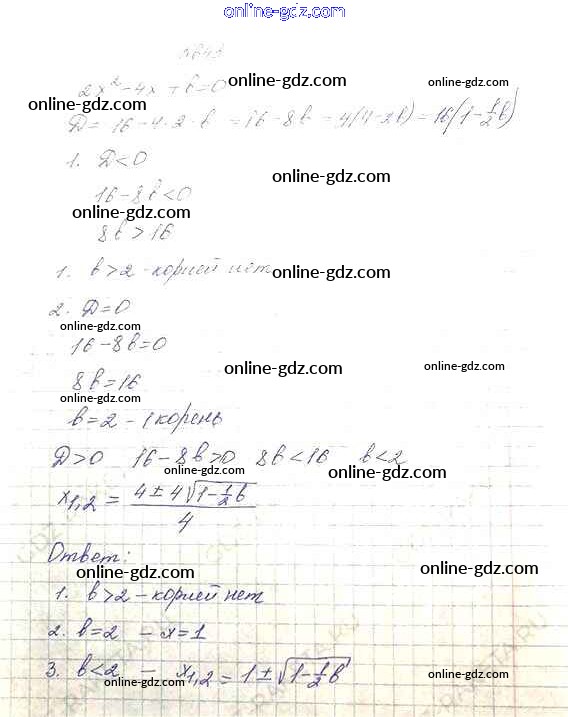 online-gdz.com
№643
online-gdz.com online-gdz.com
2x² - 4x + b = 0
online-gdz.com
D = 16 - 4·2·b = 16 - 8b = 4(4 - 2b) = 16(1 - 1/2 b)
1. D < 0
online-gdz.com
16 - 8b < 0
online-gdz.com
8b > 16
1. b > 2 - корней нет
online-gdz.com
2. D = 0
online-gdz.com
16 - 8b = 0
online-gdz.com online-gdz.com
8b = 16
online-gdz.com
b = 2 - 1 корень
D > 0 16 - 8b > 0 8b < 16 b < 2
online-gdz.com online-gdz.com
x1,2 = (4 ± 4√(1 - 1/2 b)) / 4
Ответ:
online-gdz.com online-gdz.com
1. b > 2 - корней нет
2. b = 2 - x = 1
online-gdz.com
3. b < 2 - x1,2 = 1 ± √(1 - 1/2 b)
online-gdz.com online-gdz.com